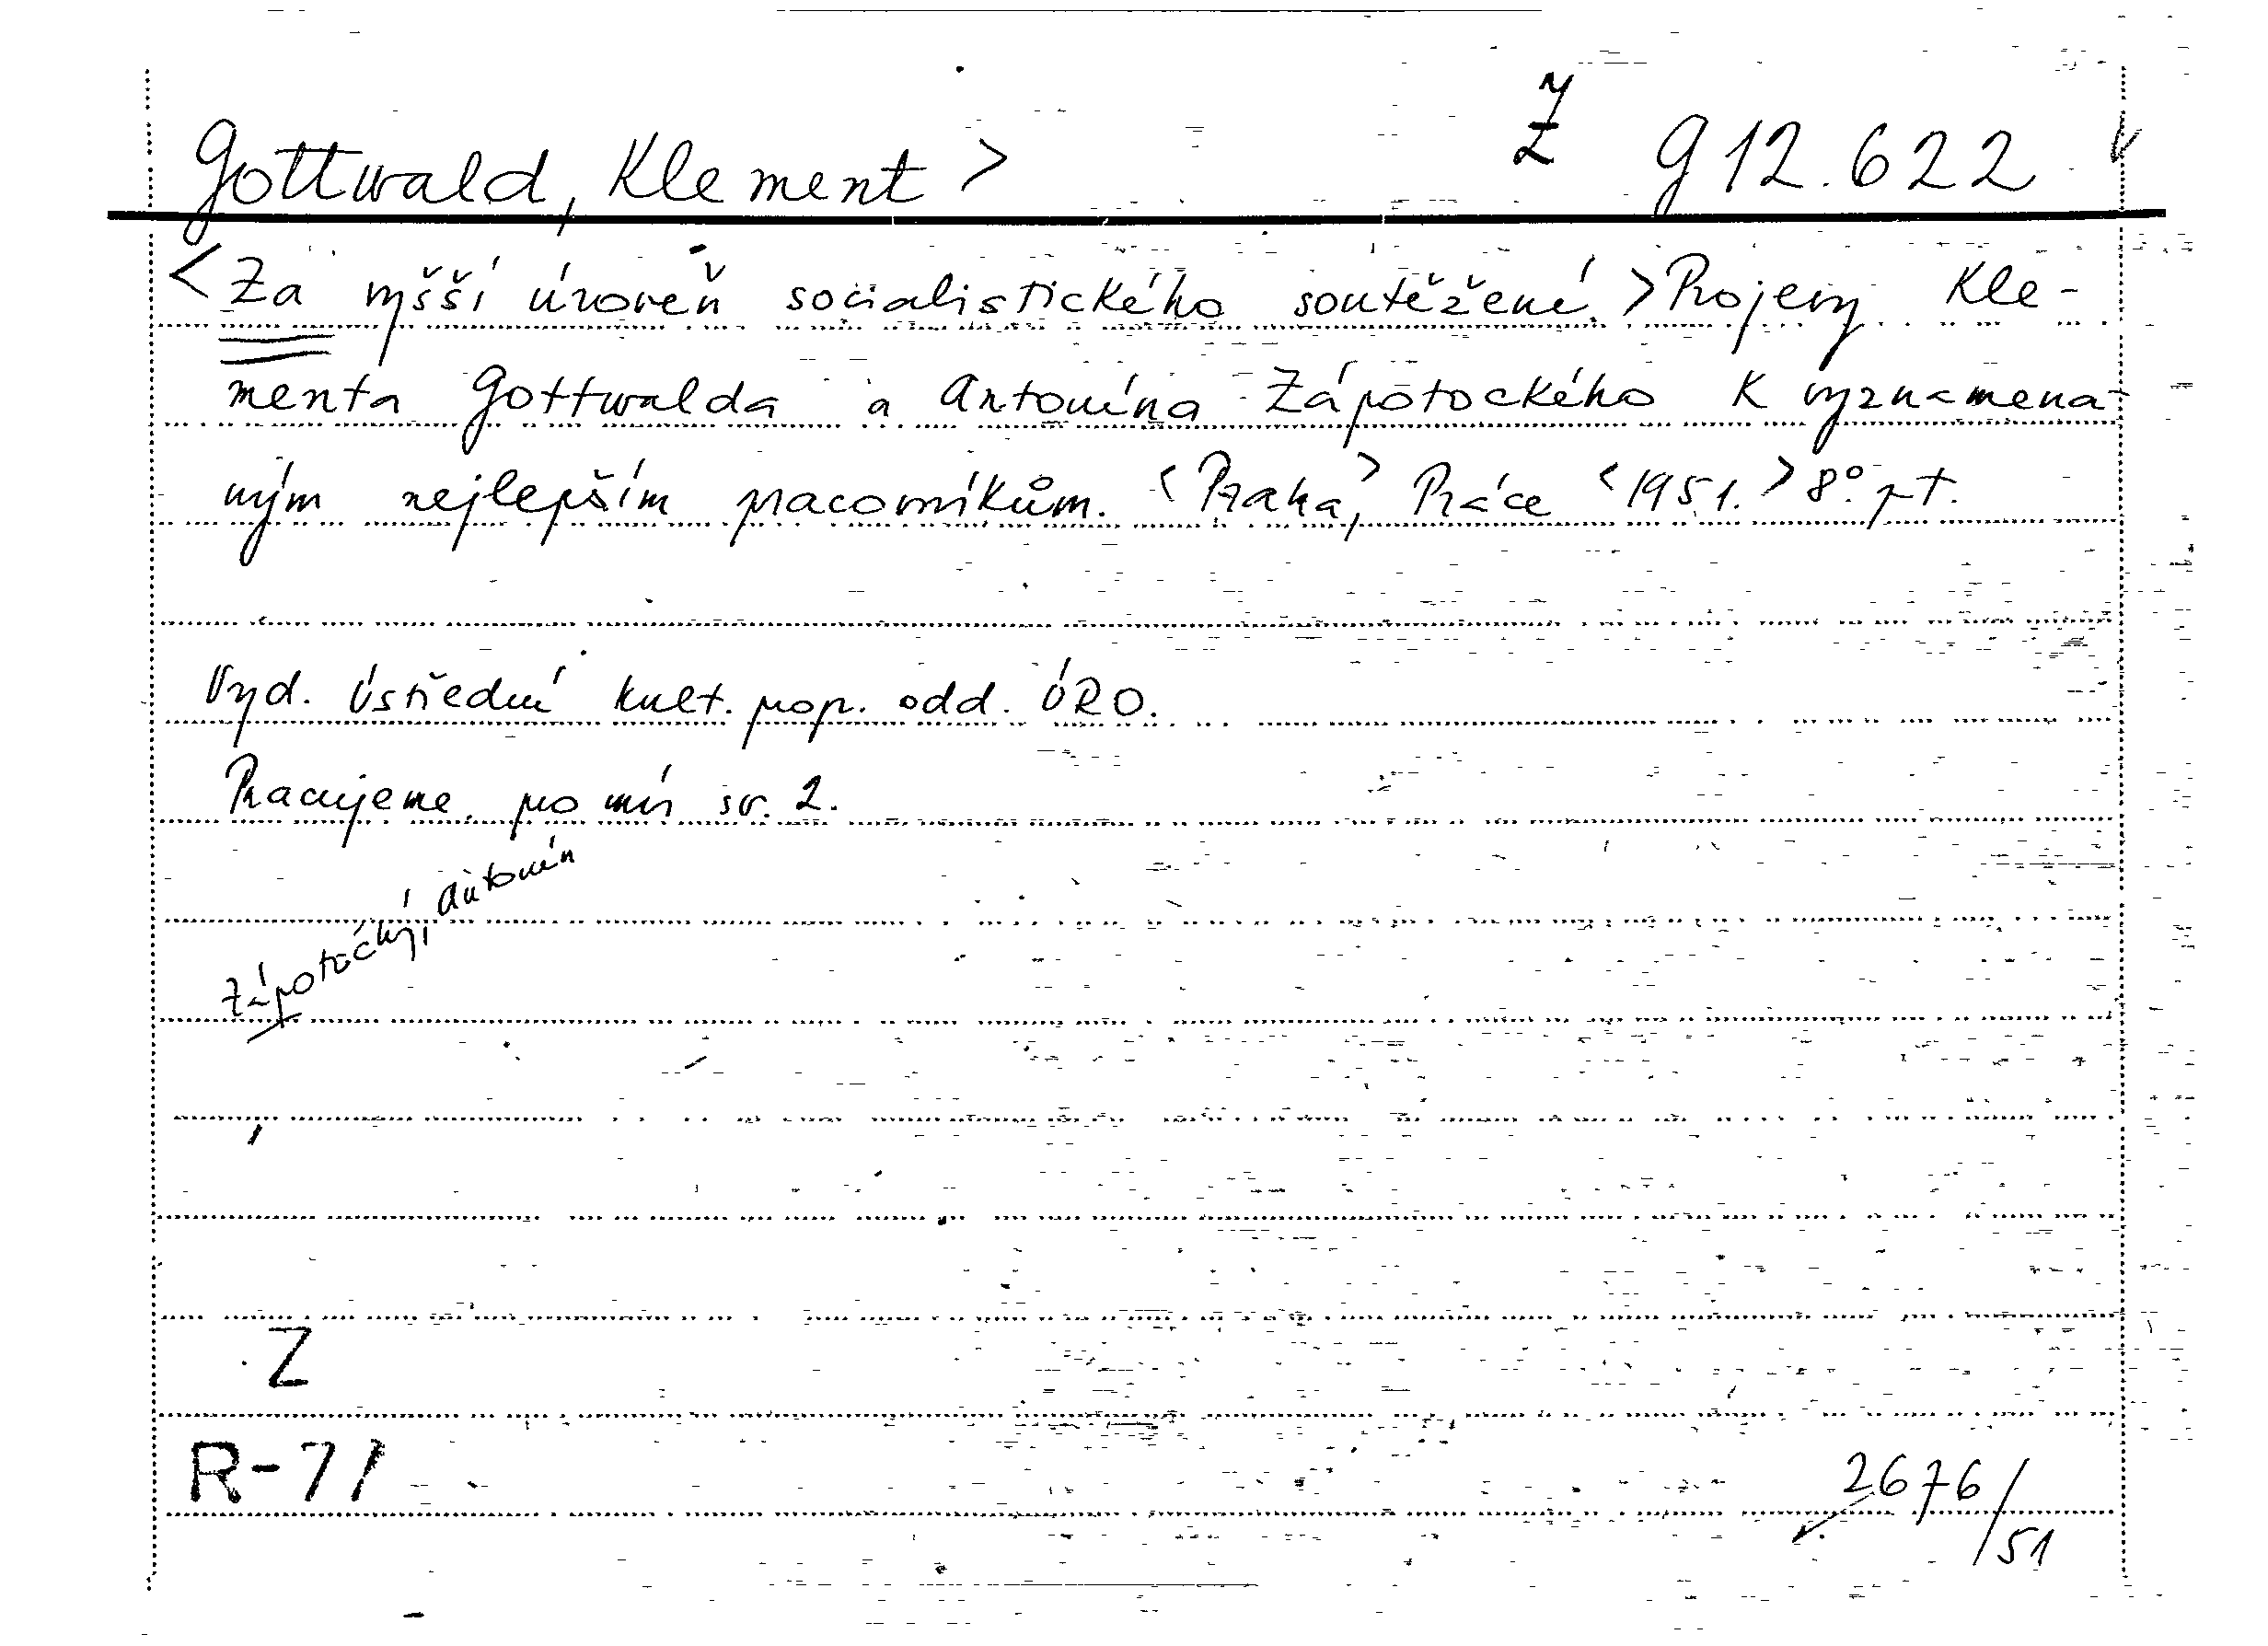 Ž g 12.622
Gottwald, Klement >
< Za vyšší úroveň socialistického soutěžení. > Projevy Kle-
menta Gottwalda a Antonína Zápotockého k vyznamena-
ným nejlepším pracovníkům. < Praha, > Práce < 1951. > 8° pt.
Vyd. Ústřední kult. prop. odd. ÚRO.
Pracujeme pro mír sv. 2.
Zápotocký, Antonín
Z
R-71
2676/51